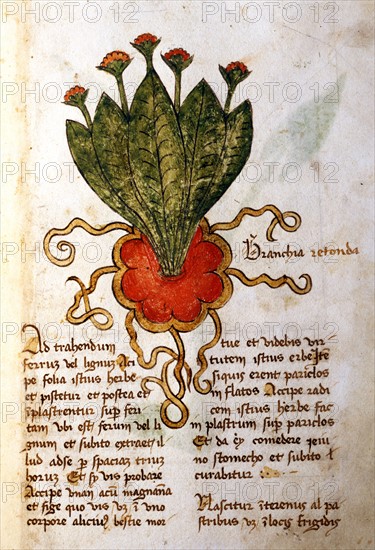 Branchia retonda
Ad trahendum
ferrum vel lignum Acci
pe folia istius herbe
et pistetur et postea et
plastrentur sup fer
tam ubi est ferum vel li
gnum et subito extraet il
lud adse p spacium trium
horum Et si vis probare
Accipe unam acum magnam
et fige quo vis in uno
corpore alicuius bestie mor
tue et videbis vir
tutem istius erbe Ite
si quis erent paricłos
inflatos Accipe radi
cem istius herbe fac
in plastrum sup paricłos
Et da ei comedere jeiu
no stomecho et subito
curabitur
Nascitur in terenis al pa
stribus in locis frigidis
PHOTO12